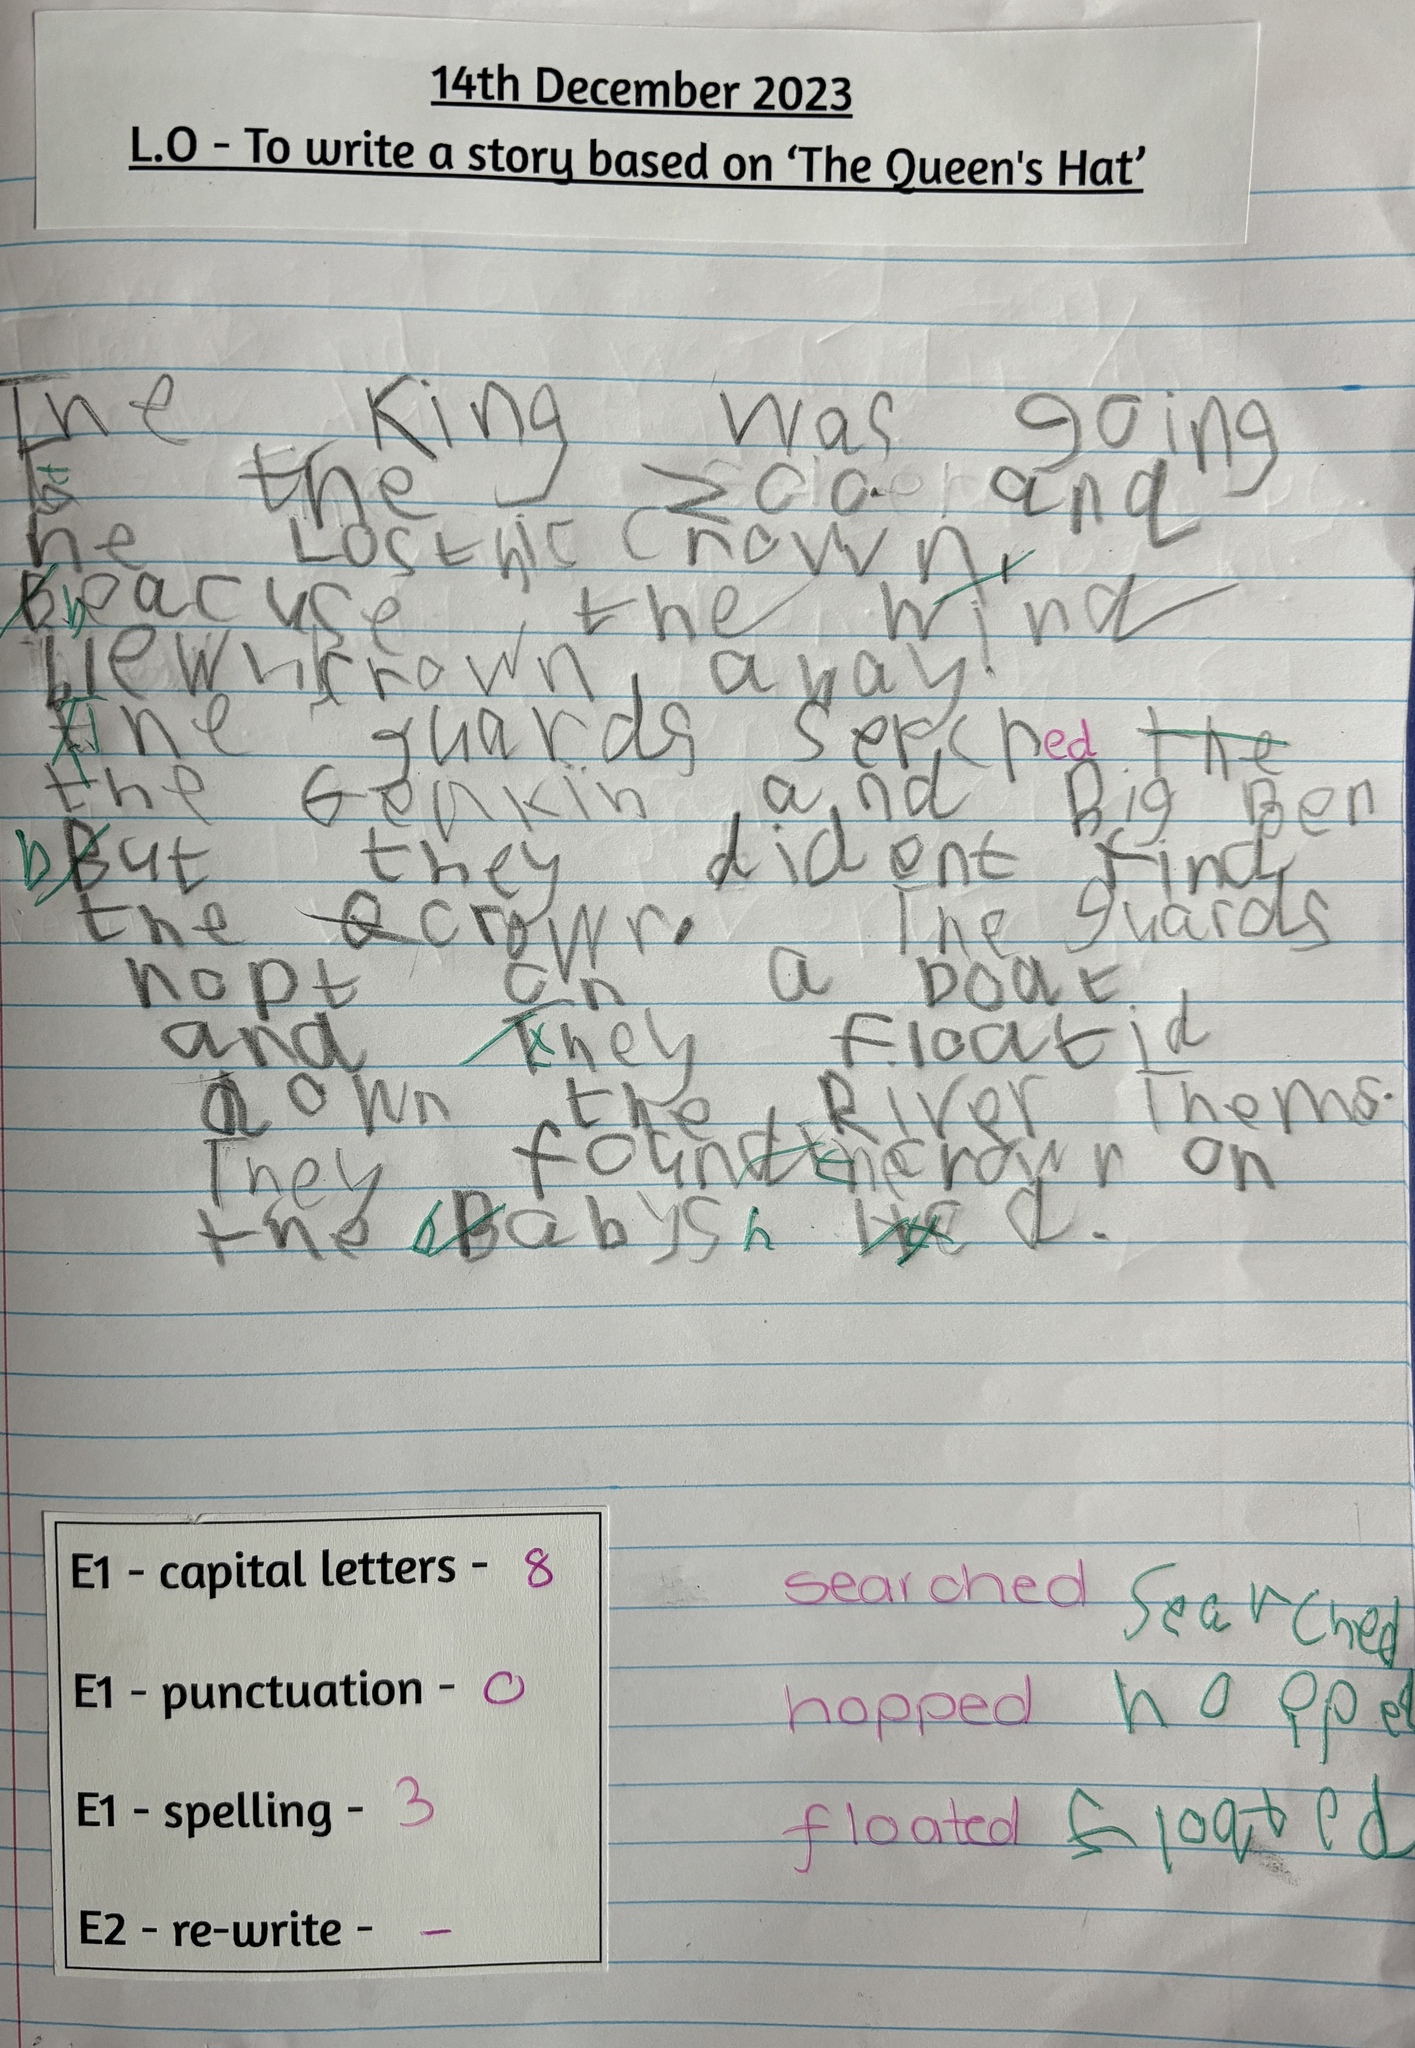 14th December 2023
L.O - To write a story based on 'The Queen's Hat'
The King was going
to the zoo and
he Lost his Crown,
beacuse the wind
blew his crown away.
The guards serched the
the Gerkin and Big Ben
but they dident find
the crown. The guards
hopt on a boat
and they floatid
down the River Thems.
They found the crown on
the babys hed.
E1 - capital letters - 8
E1 - punctuation - 0
E1 - spelling - 3
E2 - re-write - -
searched Searched
hopped hopped
floated floated